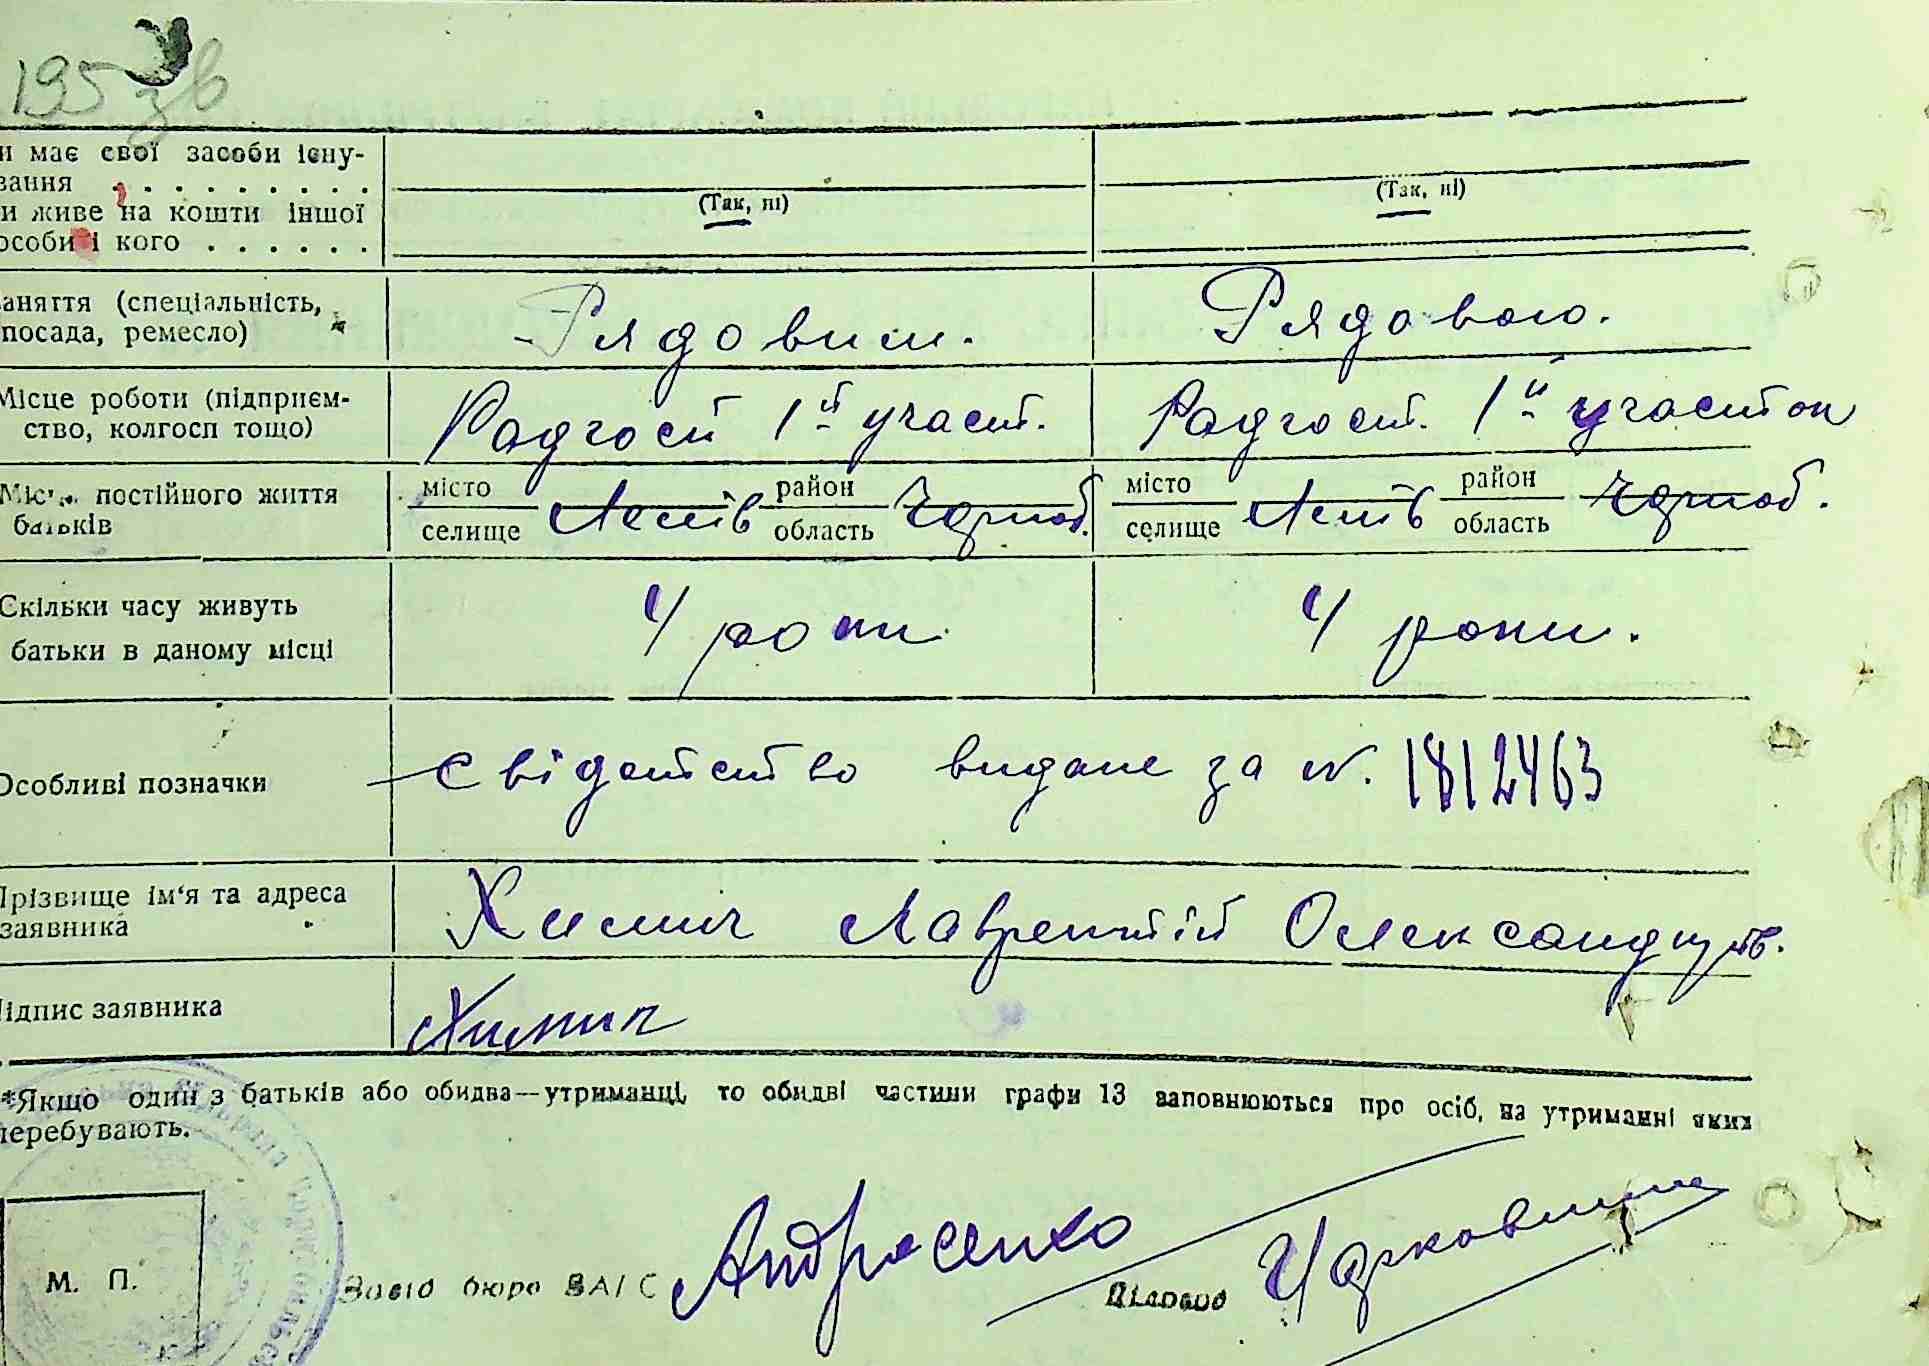 195 зв
и має свої засоби існу-
вання . . . . . . . . .
и живе на кошти іншої
особи і кого . . . . . .
(Так, ні)
(Так, ні)
аняття (спеціальність,
посада, ремесло)
Рядовим.
Рядовою.
Місце роботи (підприєм-
ство, колгосп тощо)
Радгосп 1й участ.
Радгосп. 1й участок
Місце постійного життя
батьків
місто
селище
район
область
Чорноб.
місто
селище
район
область
Чорноб.
Скільки часу живуть
батьки в даному місці
4 роки
4 роки.
Особливі позначки
Свідотство видане за №. 1812463
Прізвище ім'я та адреса
заявника
Химич Лаврентій Олександров.
підпис заявника
Химич
*Якщо один з батьків або обидва—утриманці, то обидві частини графи 13 заповнюються про осіб, на утриманні яких
перебувають.
М. П.
Завід бюро ЗАГС
Андросенко
Діловод